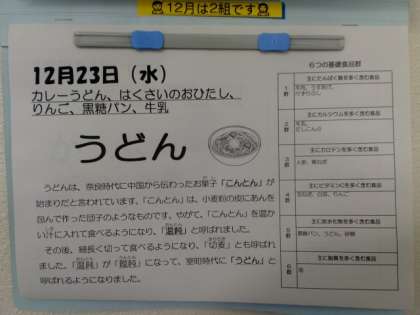 12月は2組です
12月23日(水)
カレーうどん、はくさいのおひたし、
りんご、黒糖パン、牛乳
うどん
うどんは、奈良時代に中国から伝わったお菓子「こんとん」が
始まりだと言われています。「こんとん」は小麦粉の皮にあんを
包んで作った団子のようなものです。やがて、「こんとん」を温か
い汁に入れて食べるようになり、「温飩」と呼ばれました。
その後、細長く切って食べるようになり、「切麦」とも呼ばれ
ました。「温飩」が「饂飩」になって、室町時代に「うどん」と
呼ばれるようになりました。
6つの基礎食品群
1群
主にたんぱく質を多く含む食品
2群
主にカルシウムを多く含む食品
牛乳、
3群
主にカロテンを多く含む食品
4群
主にビタミンCを多く含む食品
5群
主に炭水化物を多く含む食品
黒糖パン、うどん、砂糖
6群
主に脂質を多く含む食品
油